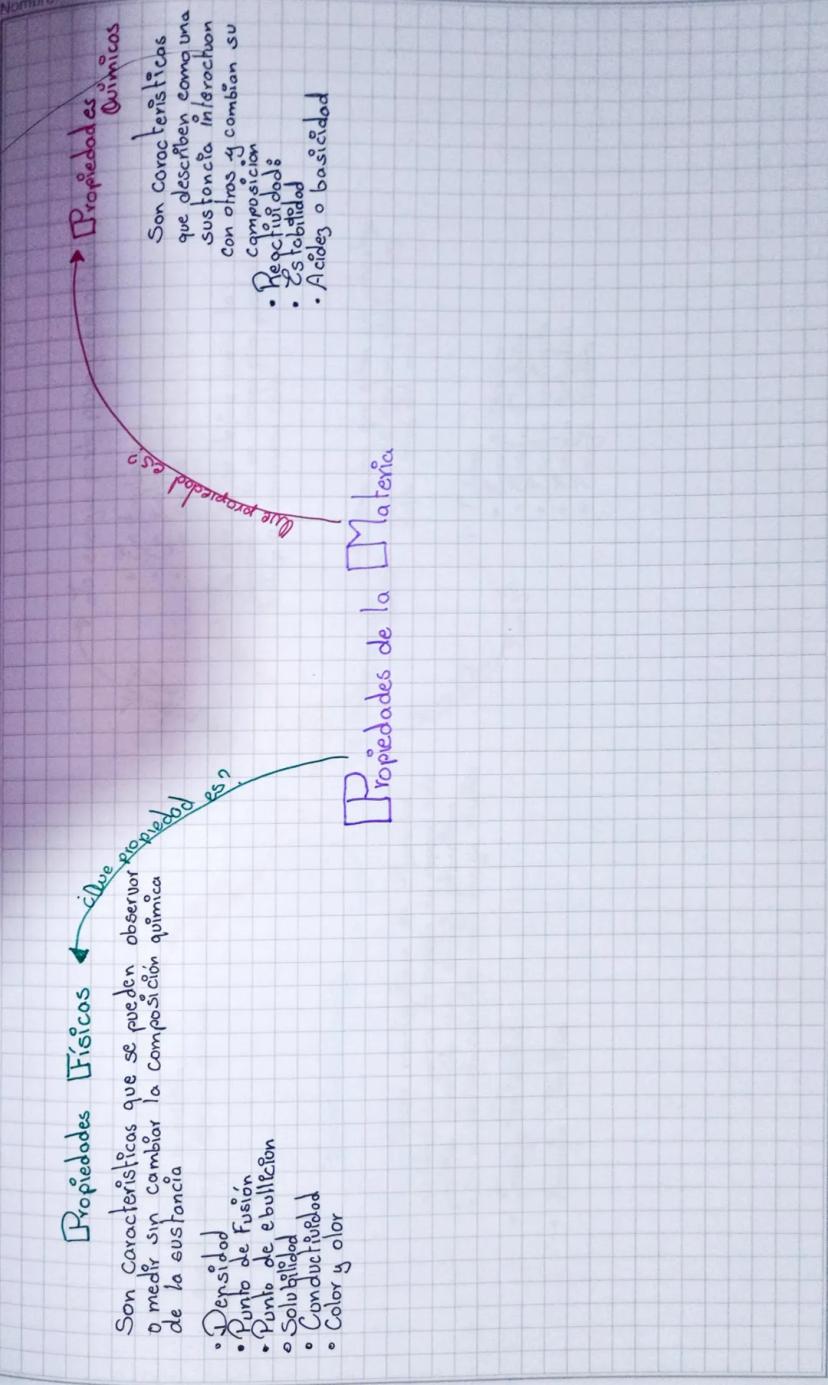 Nombre
Propiedades Físicas
Son Características que se pueden observar
o medir sin cambiar la composición química
de la sustancia
• Densidad
• Punto de Fusión
• Punto de ebullicion
• Solubilidad
• Conductividad
• Color y olor
¿Que propiedad es?
Propiedades de la Materia
Que propiedad es?
Propiedades
Químicas
Son Características
que describen como una
sustancia interactuan
con otras y cambian su
composicion
• Reactividad:
• Estabilidad
• Acidez o basicidad